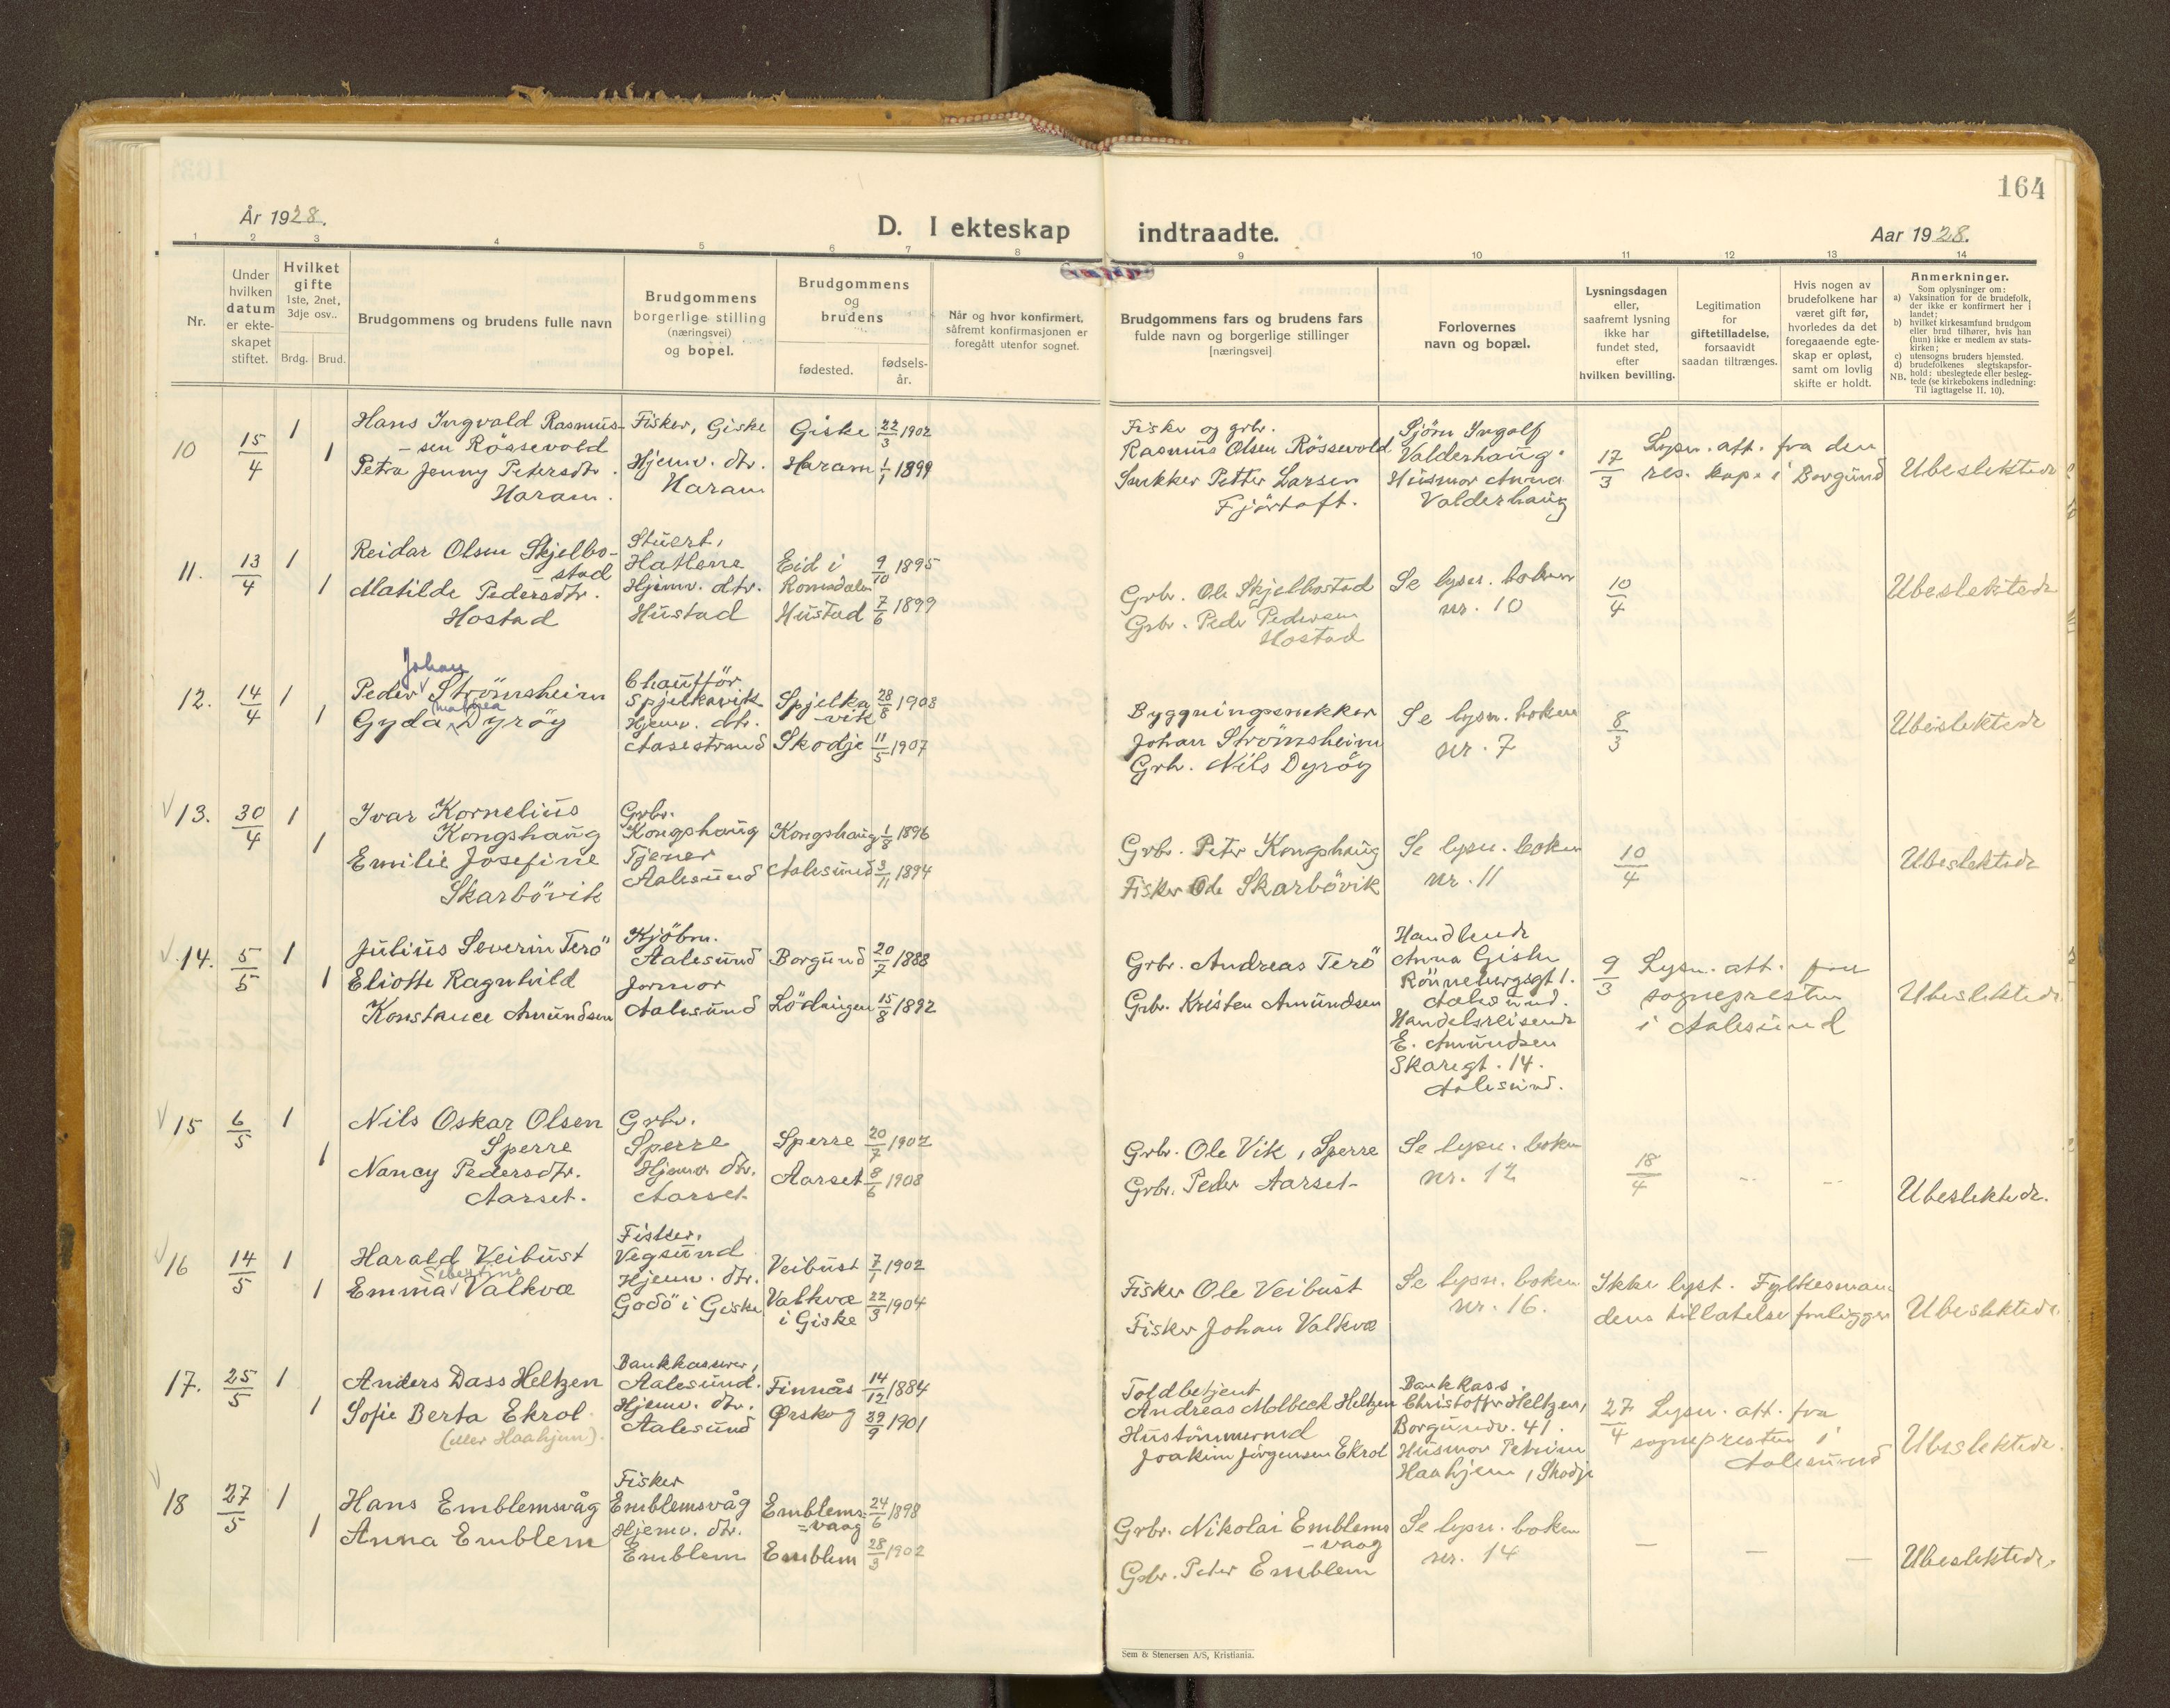 164
År 1928.
D. I ekteskap indtraadte.
Aar 1928.
1 2 3 4 5 6 7 8 9 10 11 12 13 14
Nr.
Under
hvilken
datum
er ekte-
skapet
stiftet.
Hvilket
gifte
1ste, 2net,
3dje osv..
Brdg. Brud.
Brudgommens og brudens fulle navn
Brudgommens
borgerlige stilling
(næringsvei)
og bopel.
Brudgommens
og
brudens
fødested.
fødsels-
år.
Når og hvor konfirmert,
såfremt konfirmasjonen er
foregått utenfor sognet.
Brudgommens fars og brudens fars
fulde navn og borgerlige stillinger
[næringsvei]
Forlovernes
navn og bopæl.
Lysningsdagen
eller,
saafremt lysning
ikke har
fundet sted,
efter
hvilken bevilling.
Legitimation
for
giftetilladelse,
forsaavidt
saadan tiltrænges.
Hvis nogen av
brudefolkene har
været gift før,
hvorledes da det
foregaaende egte-
skap er opløst,
samt om lovlig
skifte er holdt.
Anmerkninger.
Som oplysninger om:
a) Vaksination for de brudefolk,
der ikke er konfirmert her i
landet;
b) hvilket kirkesamfund brudgom
eller brud tilhører, hvis han
(hun) ikke er medlem av stats-
kirken;
c) utensogns bruders hjemsted.
d) brudefolkenes slegtskapsfor-
hold: ubeslegtede eller besleg-
NB. tede (se kirkebokens indledning:
Til Iagttagelse II. 10).
10 15/4 1 1
Hans Ingvald Rasmus-
-sen Rössevold
Petra Jenny Petersdtr.
Haram.
Fisker, Giske
Hjemv. dtr.
Haram
Giske 22/3 1902
Haram 1/1 1899
Fisker og grbr.
Rasmus Olsen Rössevold
Snekker Petter Larsen
Fjörtoft.
Sjörn Ingolf
Valderhaug.
Husmor Anna
Valderhaug
17/3 Lysn. att. fra den
res. kap. i Borgund
Ubeslektede
11. 13/4 1 1
Reidar Olsen Skjelbo-
-stad
Matilde Pedersdtr.
Hostad
Stuert,
Hatlene
Hjemv. dtr.
Hustad
Eid i
Romsdalen 9/10 1895
Hustad 7/6 1899
Grbr. Ole Skjelbostad
Grbr. Peder Pedersen
Hostad
Se lysn. boken
nr. 10
10/4
Ubeslektede
12. 14/4 1 1
Johan
Peder Strömsheim
Malnea
Gyda Dyröy
Chaufför
Spjelkavik
Hjemv. dtr.
Aasestrand
Spjelka
-vik 28/8 1908
Skodje 11/5 1907
Byggningssnekker
Johan Strömsheim
Grbr. Nils Dyröy
Se lysn. boken
nr. 7
8/3
Ubeslektede
13. 30/4 1 1
Ivar Kornelius
Kongshaug
Emilie Josefine
Skarbövik
Grbr.
Kongshaug
Tjener
Aalesund
Kongshaug 1/8 1896
Aalesund 3/11 1894
Grbr. Peter Kongshaug
Fisker Ole Skarbövik
Se lysn. boken
nr. 11
10/4
Ubeslektede
14. 5/5 1 1
Julius Severin Terö
Eliotte Ragnhild
Konstance Amundsen
Kjöbm.
Aalesund
Jormor
Aalesund
Borgund 20/7 1888
Lödingen 15/8 1892
Grbr. Andreas Terö
Grbr. Kristen Amundsen
Handlende
Anna Giske
Rönnebergsgt 1.
Aalesund.
Handelsreisende
E. Amundsen
Skaregt. 14.
Aalesund.
9/3 Lysn. att. fra
sognepresten
i Aalesund
Ubeslektede
15 6/5 1 1
Nils Oskar Olsen
Sperre
Nancy Pedersdtr.
Aarset.
Grbr.
Sperre
Hjemv. dtr.
Aarset
Sperre 20/7 1902
Aarset 8/6 1908
Grbr. Ole Vik, Sperre
Grbr. Peder Aarset
Se lysn. boken
nr. 12
18/4
Ubeslektede.
16 14/5 1 1
Harald Veibust
Sebertine
Emma Valkvæ
Fisker,
Vegsund
Hjemv. dtr.
Godö i Giske
Veibust 7/1 1902
Valkvæ
i Giske 22/3 1904
Fisker Ole Veibust
Fisker Johan Valkvæ
Se lysn. boken
nr. 16.
Ikke lyst. Fylkesman
dens tillatelse foreligger
Ubeslektede
17. 25/5 1 1
Anders Dass Heltzen
Sofie Berta Ekrol
(eller Haahjem).
Bankkasserer,
Aalesund.
Hjemv. dtr.
Aalesund
Finnås 14/12 1884
Ørskog 29/9 1901
Toldbetjent
Andreas Molbeck Heltzen
Hustömmermd
Joakim Jörgensen Ekrol
Bankkass.
Christoffer Heltzen,
Borgundv. 41.
Husmor Petrine
Haahjem, Skodje
27/4 Lysn. att. fra
sognepresten i
Aalesund
Ubeslektede.
18 27/5 1 1
Hans Emblemsvåg
Anna Emblem
Fisker
Emblemsvåg
Hjemv. dtr.
Emblem
Emblems-
-vaag 24/6 1898
Emblem 28/3 1902
Grbr. Nikolai Emblems
-vaag
Grbr. Peter Emblem
Se lysn. boken
nr. 14
Ubeslektede.
Sem & Stenersen A/S, Kristiania.